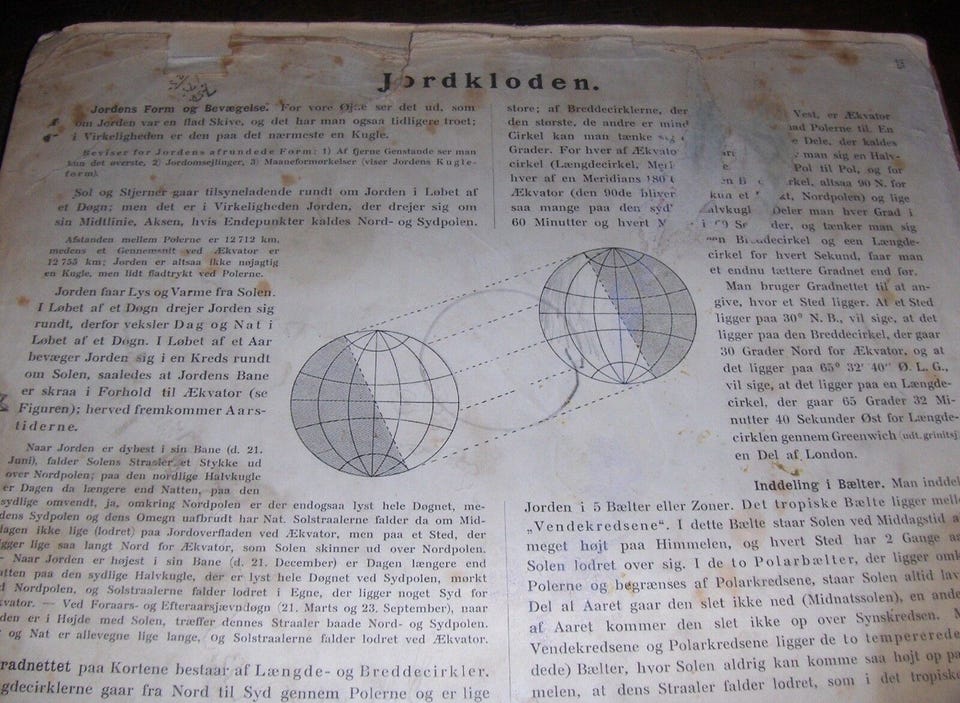 Jordkloden.
Jordens Form og Bevægelse. For vore Øjne ser det ud, som
om Jorden var en flad Skive, og det har man ogsaa tidligere troet;
i Virkeligheden er den paa det nærmeste en Kugle.
Beviser for Jordens afrundede Form: 1) Af fjerne Genstande ser man
kun det øverste, 2) Jordomsejlinger, 3) Maaneformørkelser (viser Jordens Kugle-
form).
Sol og Stjerner gaar tilsyneladende rundt om Jorden i Løbet af
et Døgn; men det er i Virkeligheden Jorden, der drejer sig om
sin Midtlinie, Aksen, hvis Endepunkter kaldes Nord- og Sydpolen.
Afstanden mellem Polerne er 12 712 km,
medens et Gennemsnit ved Ækvator er
12 755 km; Jorden er altsaa ikke nøjagtig
en Kugle, men lidt fladtrykt ved Polerne.
Jorden faar Lys og Varme fra Solen.
I Løbet af et Døgn drejer Jorden sig
rundt, derfor veksler Dag og Nat i
Løbet af et Døgn. I Løbet af et Aar
bevæger Jorden sig i en Kreds rundt
om Solen, saaledes at Jordens Bane
er skraa i Forhold til Ækvator (se
Figuren); herved fremkommer Aars-
tiderne.
Naar Jorden er dybest i sin Bane (d. 21.
Juni), falder Solens Straaler et Stykke ud
over Nordpolen; paa den nordlige Halvkugle
er Dagen da længere end Natten, paa den
sydlige omvendt, ja, omkring Nordpolen er der endogsaa lyst hele Døgnet, me-
dens Sydpolen og dens Omegn uafbrudt har Nat. Solstraalerne falder da om Mid-
dagen ikke lige (lodret) paa Jordoverfladen ved Ækvator, men paa et Sted, der
ligger lige saa langt Nord for Ækvator, som Solen skinner ud over Nordpolen.
— Naar Jorden er højest i sin Bane (d. 21. December) er Dagen længere end
Natten paa den sydlige Halvkugle, der er lyst hele Døgnet ved Sydpolen, mørkt
Nordpolen, og Solstraalerne falder lodret i Egne, der ligger noget Syd for
Ækvator. — Ved Foraars- og Efteraarsjævndøgn (21. Marts og 23. September), naar
Jorden er i Højde med Solen, træffer dennes Straaler baade Nord- og Sydpolen.
og Nat er allevegne lige lange, og Solstraalerne falder lodret ved Ækvator.
radnettet paa Kortene bestaar af Længde- og Breddecirkler.
gdecirklerne gaar fra Nord til Syd gennem Polerne og er lige
store; af Breddecirklerne, der
den største, de andre er mind
Cirkel kan man tænke sig
Grader. For hver af Ækvato
cirkel (Længdecirkel, Meri
hver af en Meridians 180
Ækvator (den 90de bliver
saa mange paa den syd
60 Minutter og hvert
Vest, er Ækvator
mod Polerne til. En
Dele, der kaldes
man sig en Halv-
Pol til Pol, og for
rkel, altsaa 90 N. for
Nordpolen) og lige
alvkugl Deler man hver Grad i
der, og tænker man sig
een Breddecirkel og een Længde-
cirkel for hvert Sekund, faar man
et endnu tættere Gradnet end før.
Man bruger Gradnettet til at an-
give, hvor et Sted ligger. At et Sted
ligger paa 30° N. B., vil sige, at det
ligger paa den Breddecirkel, der gaar
30 Grader Nord for Ækvator, og at
det ligger paa 65° 32′ 40″ Ø. L. G.,
vil sige, at det ligger paa en Længde-
cirkel, der gaar 65 Grader 32 Mi-
nutter 40 Sekunder Øst for Længde-
cirklen gennem Greenwich (udt. grinitsj)
en Del af London.
Inddeling i Bælter. Man inddel
Jorden i 5 Bælter eller Zoner. Det tropiske Bælte ligger melle
„Vendekredsene“. I dette Bælte staar Solen ved Middagstid a
meget højt paa Himmelen, og hvert Sted har 2 Gange aa
Solen lodret over sig. I de to Polarbælter, der ligger omk
Polerne og begrænses af Polarkredsene, staar Solen altid lav
Del af Aaret gaar den slet ikke ned (Midnatssolen), en ande
af Aaret kommer den slet ikke op over Synskredsen.
Vendekredsene og Polarkredsene ligger de to tempererede
dede) Bælter, hvor Solen aldrig kan komme saa højt op pa
melen, at dens Straaler falder lodret, som i det tropiske